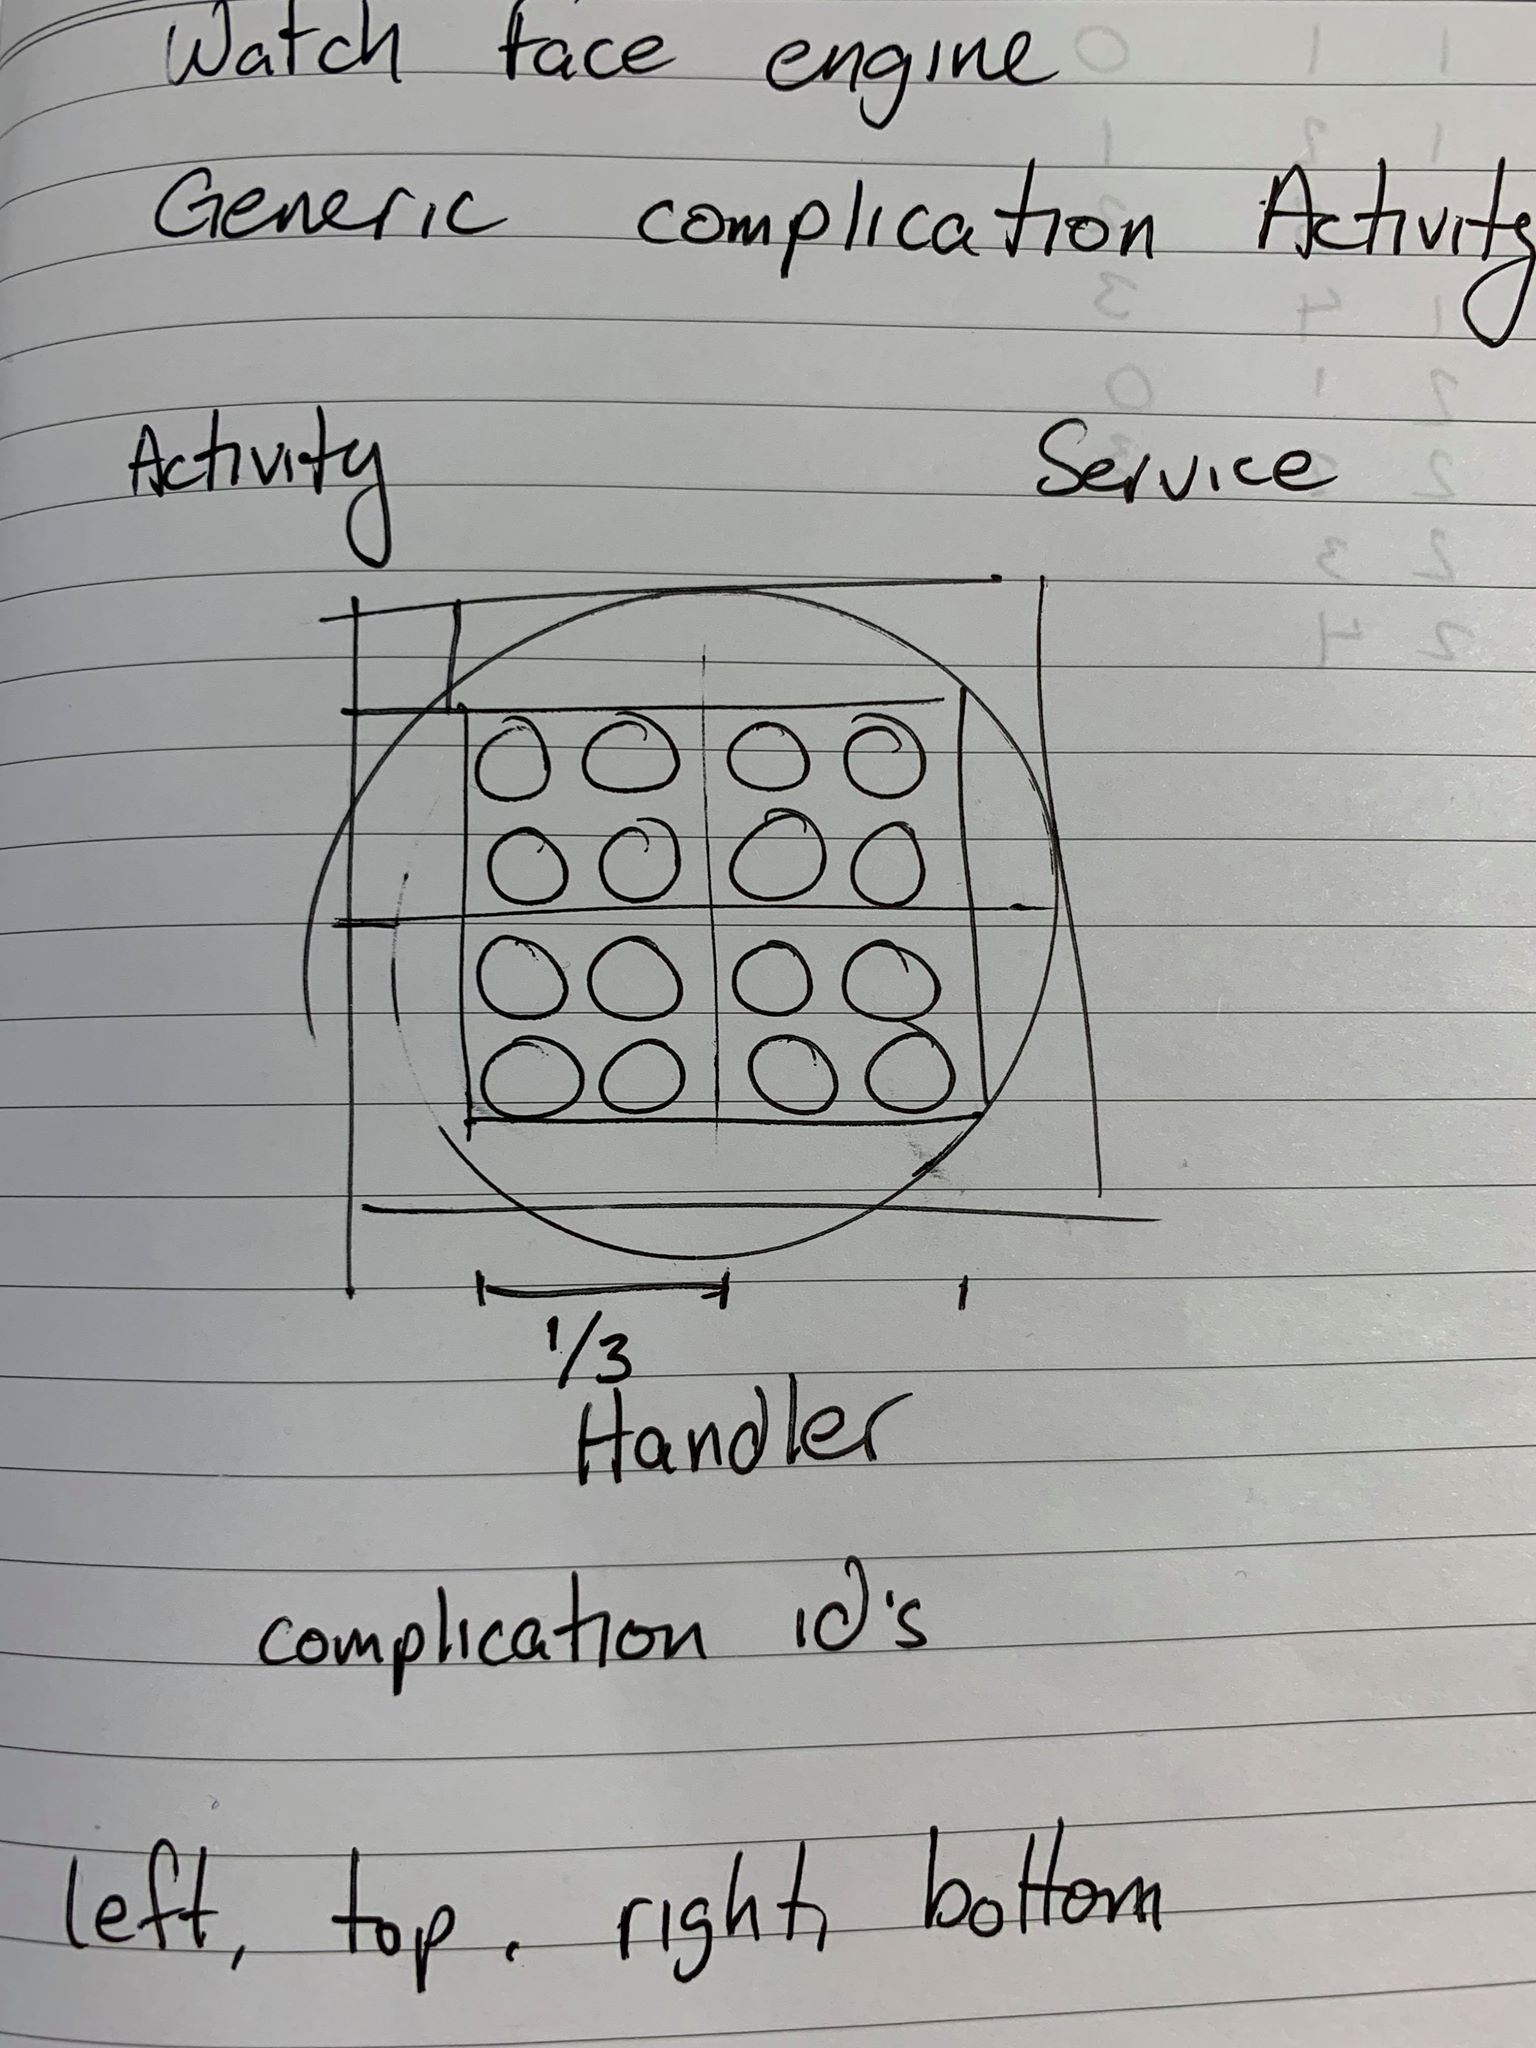 Watch face engine
Generic complication Activity
Activity Service
1/3
Handler
complication id's
left, top. right, bottom